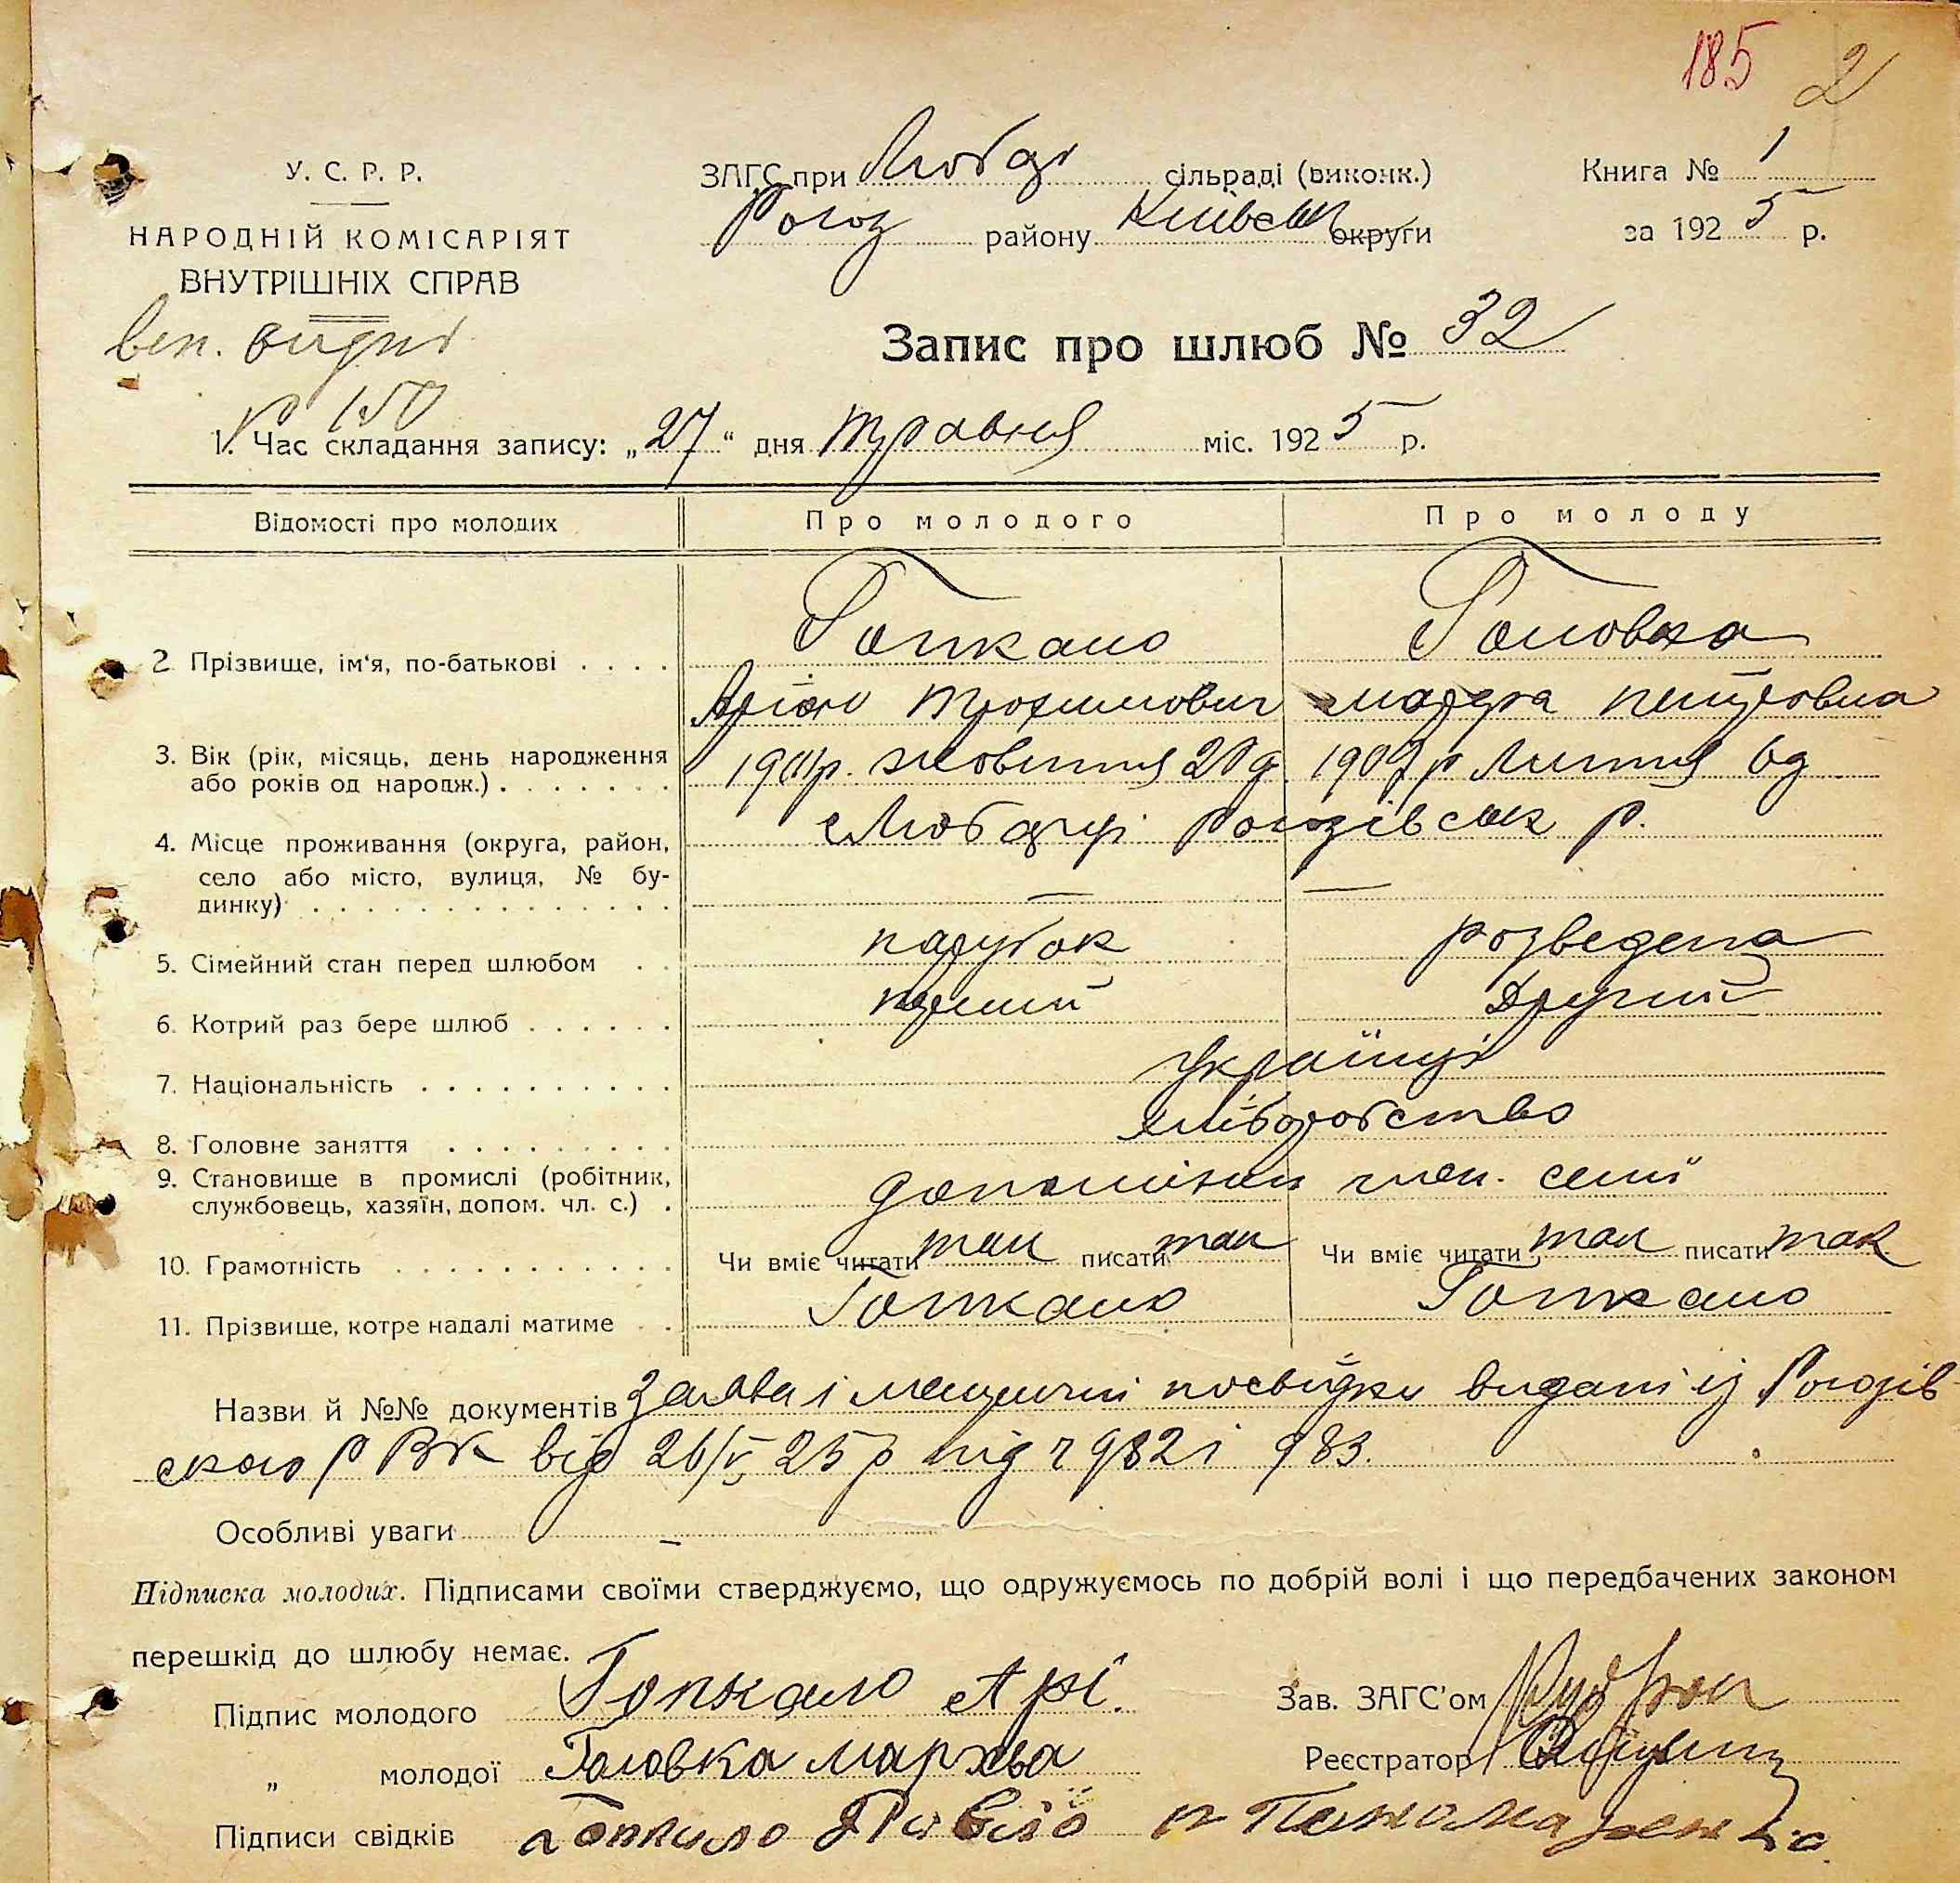 185 2
У. С. Р. Р.
НАРОДНІЙ КОМІСАРІЯТ
ВНУТРІШНІХ СПРАВ
ЗАГС при Любар сільраді (виконк.)
Рогоз району Київськ округи
Книга № 1
за 1925 р.
Запис про шлюб № 32
№ 150
1. Час складання запису: „27“ дня травня міс. 1925 р.
Відомості про молодих Про молодого Про молоду
2 Прізвище, ім'я, по-батькові . . . . Гопкало Головка
Трохимович петровна
3. Вік (рік, місяць, день народження
або років од народж.) . . . . . . . жовтня 20 д. Липня 6д
4. Місце проживання (округа, район,
село або місто, вулиця, № бу-
динку) . . . . . . . . . . . . . Рогозівськ р.
— —
5. Сімейний стан перед шлюбом . . парубок розведена
6. Котрий раз бере шлюб . . . . . . перший Другий
7. Національність . . . . . . . . . . Українці
8. Головне заняття . . . . . . . . . хліборобство
9. Становище в промислі (робітник,
службовець, хазяїн, допом. чл. с.) . член. семї
10. Грамотність . . . . . . . . . . . Чи вміє читати так писати так Чи вміє читати так писати так
11. Прізвище, котре надалі матиме . . Гопкало Гопкало
Назви й №№ документів Заява і посвідки видані із Рогозів
ского РВК від 26/V 25 р під ч 982 і 983.
Особливі уваги –
Підписка молодих. Підписами своїми стверджуємо, що одружуємось по добрій волі і що передбачених законом
перешкід до шлюбу немає.
Підпис молодого Гопкало Арі.
Зав. ЗАГС'ом
„ молодої Головка Мархва
Реєстратор
Підписи свідків Гопкало Павло